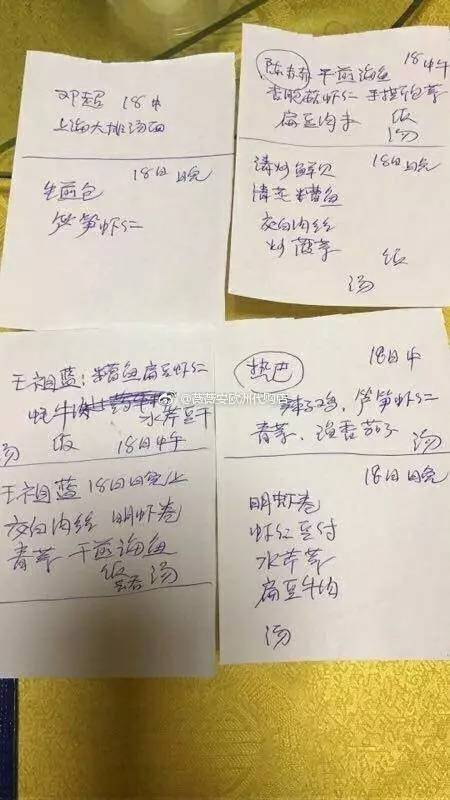 邓超 18中
上海大排汤面
18日晚
生煎包
笋虾仁
陈赫 干煎海鱼 18中午
虾仁 手撕包菜
扁豆肉末 饭
汤
清炒鲜贝 18日晚
清蒸糟鱼
茭白肉丝
炒菠菜 饭
汤
王祖蓝：糟鱼 扁豆虾仁
牛 水芹豆干
汤 饭 18日中午
王祖蓝 18日日晚上
茭白肉丝 明虾卷
青菜 干煎海鱼
饭 汤
@薇薇安欧洲代购店
热巴 18日中
辣子鸡，笋虾仁
青菜，鱼香茄子 汤
18日晚
明虾卷
虾仁豆付
水芹菜
扁豆牛肉
汤